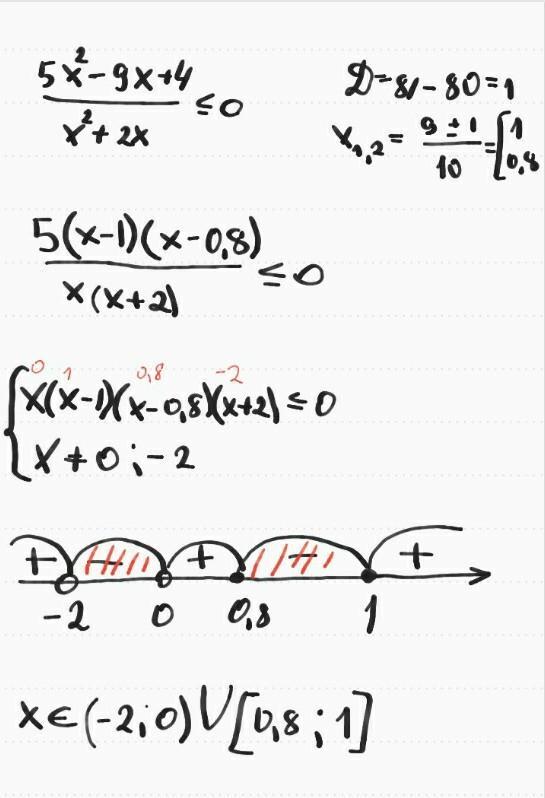 (5x² - 9x + 4)/(x² + 2x) ≤ 0
D = 81 - 80 = 1
x₁,₂ = (9 ± 1)/10 = [1
0,8
5(x-1)(x-0,8)/(x(x+2)) ≤ 0
0 1 0,8 -2
{x(x-1)(x-0,8)(x+2) ≤ 0
x ≠ 0 ; -2
+ - + - +
-2 0 0,8 1
x ∈ (-2; 0) ∪ [0,8 ; 1]